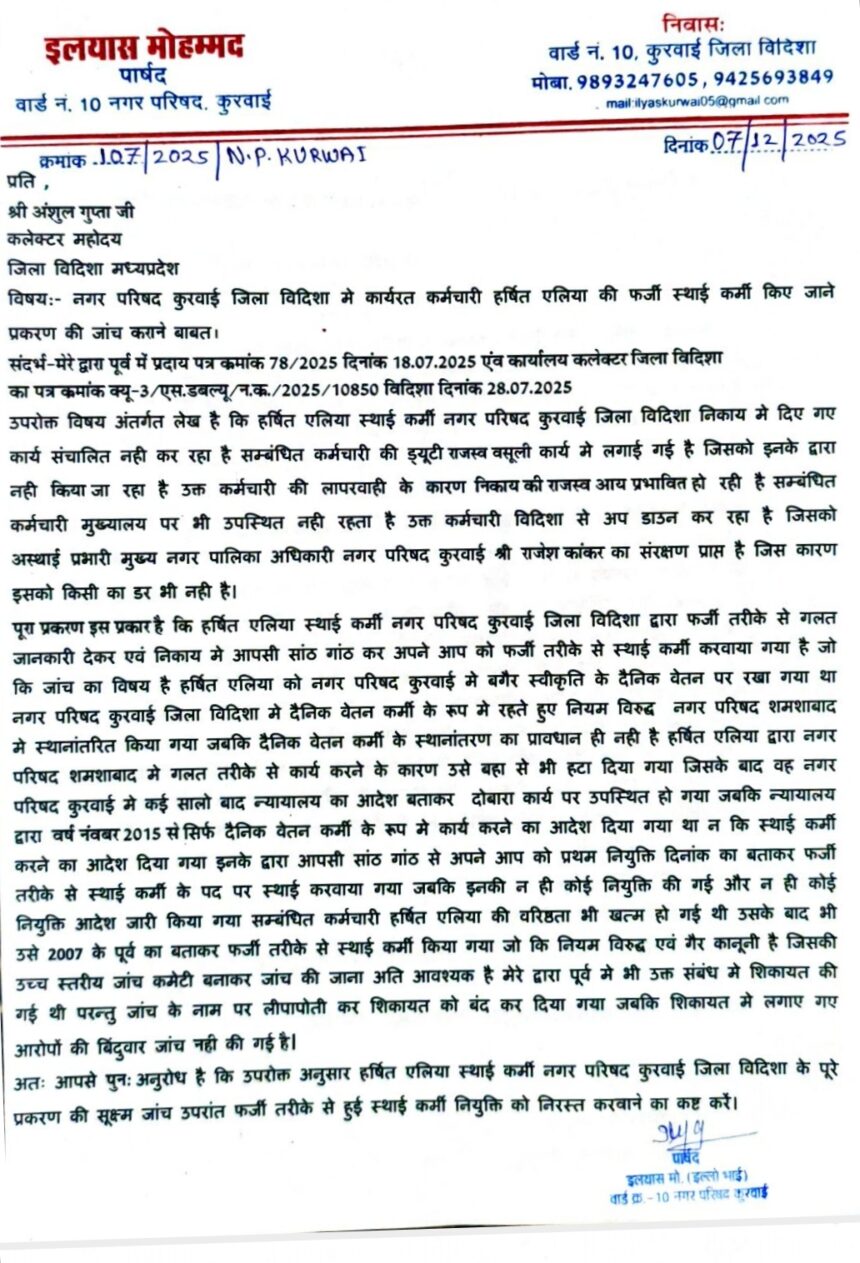 इलयास मोहम्मद
पार्षद
वार्ड नं. 10 नगर परिषद, कुरवाई
निवासः
वार्ड नं. 10, कुरवाई जिला विदिशा
मोबा. 9893247605, 9425693849
mail:ilyaskurwai05@gmail com
क्रमांक 107/2025/N.P. KURWAI
दिनांक 07/12/2025
प्रति ,
श्री अंशुल गुप्ता जी
कलेक्टर महोदय
जिला विदिशा मध्यप्रदेश
विषय:- नगर परिषद कुरवाई जिला विदिशा मे कार्यरत कर्मचारी हर्षित एलिया की फर्जी स्थाई कर्मी किए जाने
प्रकरण की जांच कराने बाबत।
संदर्भ-मेरे द्वारा पूर्व में प्रदाय पत्र कमांक 78/2025 दिनांक 18.07.2025 एंव कार्यालय कलेक्टर जिला विदिशा
का पत्र कमांक क्यू-3/एस.डबल्यू/न.क./2025/10850 विदिशा दिनांक 28.07.2025
उपरोक्त विषय अंतर्गत लेख है कि हर्षित एलिया स्थाई कर्मी नगर परिषद कुरवाई जिला विदिशा निकाय मे दिए गए
कार्य संचालित नही कर रहा है सम्बंधित कर्मचारी की ड्यूटी राजस्व वसूली कार्य मे लगाई गई है जिसको इनके द्वारा
नही किया जा रहा है उक्त कर्मचारी की लापरवाही के कारण निकाय की राजस्व आय प्रभावित हो रही है सम्बंधित
कर्मचारी मुख्यालय पर भी उपस्थित नही रहता है उक्त कर्मचारी विदिशा से अप डाउन कर रहा है जिसको
अस्थाई प्रभारी मुख्य नगर पालिका अधिकारी नगर परिषद कुरवाई श्री राजेश कांकर का संरक्षण प्राप्त है जिस कारण
इसको किसी का डर भी नही है।
पूरा प्रकरण इस प्रकार है कि हर्षित एलिया स्थाई कर्मी नगर परिषद कुरवाई जिला विदिशा द्वारा फर्जी तरीके से गलत
जानकारी देकर एवं निकाय मे आपसी सांठ गांठ कर अपने आप को फर्जी तरीके से स्थाई कर्मी करवाया गया है जो
कि जांच का विषय है हर्षित एलिया को नगर परिषद कुरवाई मे बगैर स्वीकृति के दैनिक वेतन पर रखा गया था
नगर परिषद कुरवाई जिला विदिशा मे दैनिक वेतन कर्मी के रूप मे रहते हुए नियम विरुद्ध नगर परिषद शमशाबाद
मे स्थानांतरित किया गया जबकि दैनिक वेतन कर्मी के स्थानांतरण का प्रावधान ही नही है हर्षित एलिया द्वारा नगर
परिषद शमशाबाद मे गलत तरीके से कार्य करने के कारण उसे बहा से भी हटा दिया गया जिसके बाद वह नगर
परिषद कुरवाई मे कई सालो बाद न्यायालय का आदेश बताकर दोबारा कार्य पर उपस्थित हो गया जबकि न्यायालय
द्वारा वर्ष नंवबर 2015 से सिर्फ दैनिक वेतन कर्मी के रूप मे कार्य करने का आदेश दिया गया था न कि स्थाई कर्मी
करने का आदेश दिया गया इनके द्वारा आपसी सांठ गांठ से अपने आप को प्रथम नियुक्ति दिनांक का बताकर फर्जी
तरीके से स्थाई कर्मी के पद पर स्थाई करवाया गया जबकि इनकी न ही कोई नियुक्ति की गई और न ही कोई
नियुक्ति आदेश जारी किया गया सम्बंधित कर्मचारी हर्षित एलिया की वरिष्ठता भी खत्म हो गई थी उसके बाद भी
उसे 2007 के पूर्व का बताकर फर्जी तरीके से स्थाई कर्मी किया गया जो कि नियम विरुद्ध एवं गैर कानूनी है जिसकी
उच्च स्तरीय जांच कमेटी बनाकर जांच की जाना अति आवश्यक है मेरे द्वारा पूर्व मे भी उक्त संबंध मे शिकायत की
गई थी परन्तु जांच के नाम पर लीपापोती कर शिकायत को बंद कर दिया गया जबकि शिकायत मे लगाए गए
आरोपों की बिंदुवार जांच नही की गई है।
अतः आपसे पुनः अनुरोध है कि उपरोक्त अनुसार हर्षित एलिया स्थाई कर्मी नगर परिषद कुरवाई जिला विदिशा के पूरे
प्रकरण की सूक्ष्म जांच उपरांत फर्जी तरीके से हुई स्थाई कर्मी नियुक्ति को निरस्त करवाने का कष्ट करें।
पार्षद
इलयास मो. (इल्लो भाई)
वार्ड क्र.-10 नगर परिषद कुरवाई